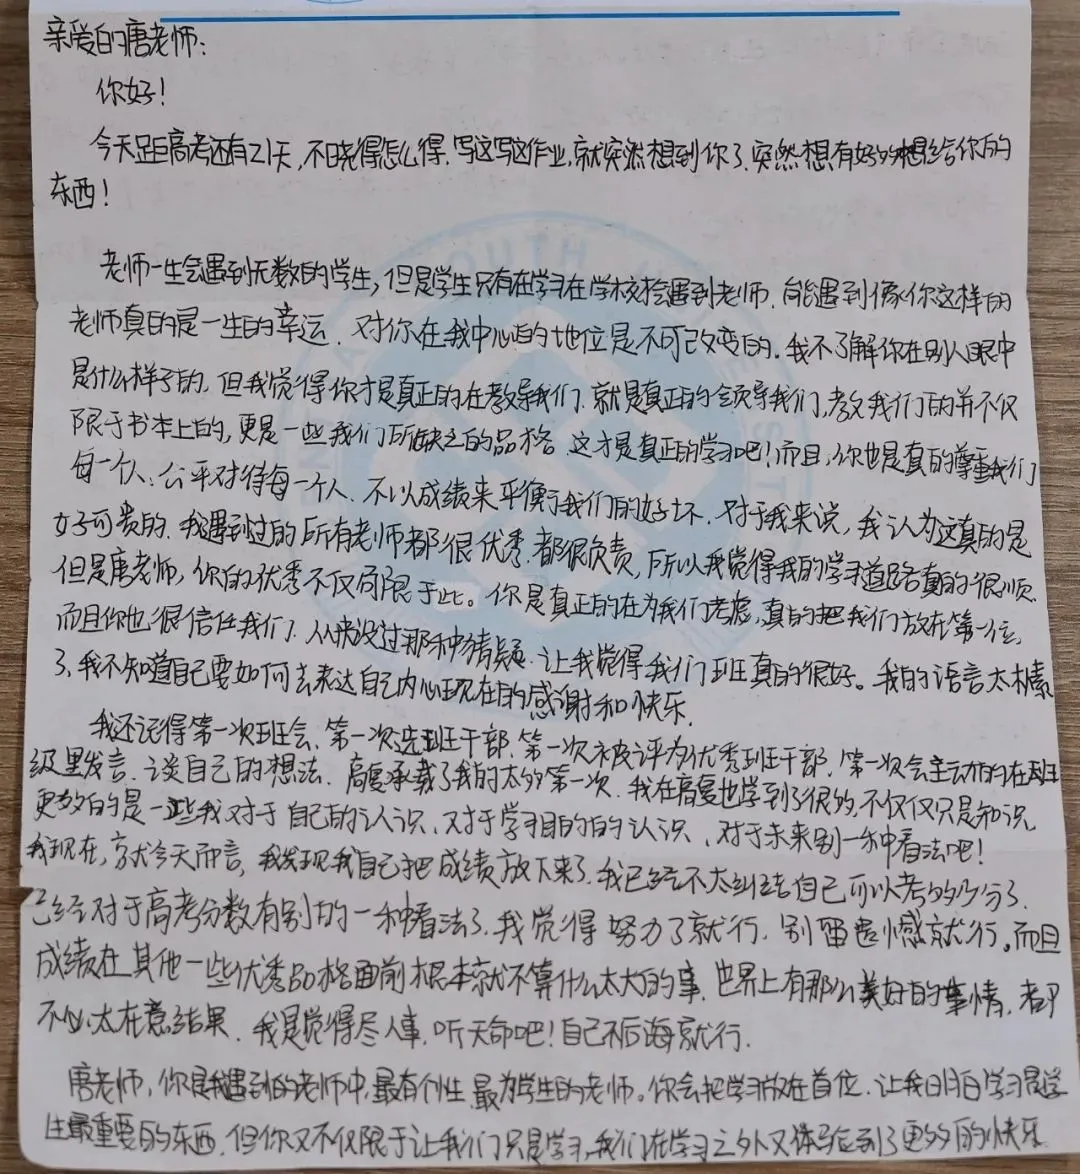 亲爱的唐老师:
你好!
今天距高考还有21天,不晓得怎么得.写这写这作业,就突然想到你了.突然想有好多想给你的
东西!
老师一生会遇到无数的学生,但是学生只有在学习在学校才会遇到老师.能遇到像你这样的
老师真的是一生的幸运.对你在我中心的地位是不可改变的.我不了解你在别人眼中
是什么样子的.但我觉得你才是真正的在教导我们.就是真正的领导我们,教我们的并不仅
限于书本上的,更是一些我们所缺乏的品格.这才是真正的学习吧!而且,你也是真的尊重我们
每一个人、公平对待每一个人.不以成绩来平衡我们的好坏.对于我来说,我认为这真的是
好可贵的.我遇到过的所有老师都很优秀.都很负责,所以我觉得我的学习道路真的很顺.
但是唐老师,你的优秀不仅局限于此。你是真正的在为我们考虑,真的把我们放在第一位,
而且你也很信任我们.从来没过那种猜疑.让我觉得我们班真的很好。我的语言太朴素
了,我不知道自己要如何去表达自己内心现在的感谢和快乐.
我还记得第一次班会、第一次选班干部.第一次被评为优秀班干部,第一次会主动的在班
级里发言.谈自己的想法.高复承载了我的太多第一次.我在高复也学到了很多,不仅仅只是知识.
更多的是一些我对于自己的认识、对于学习目的的认识、对于未来别一种看法吧!
我现在,就今天而言,我发现我自己把成绩放下来了.我已经不太纠结自己可以考多少分了.
已经对于高考分数有别的一种看法了.我觉得努力了就行.别留遗憾就行。而且
成绩在其他一些优秀品格面前根本就不算什么太大的事.世界上有那么美好的事情,都
不必太在意结果.我是觉得尽人事,听天命吧!自己不后海就行.
唐老师,你是我遇到的老师中,最有个性.最为学生的老师。你会把学习放在首位.让我明白学习是学
生最重要的东西.但你又不仅限于让我们只是学习,我们在学习之外又体验到了更多的快乐.